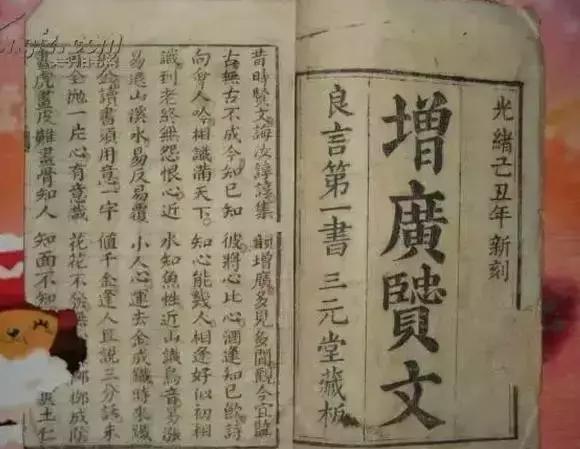 光緒己丑年新刻
增廣賢文
良言第一書 三元堂藏板
昔時賢文誨汝諄諄集韻增廣多見多聞觀今宜鑑
古無古不成今知已知彼將心比心酒逢知已飲詩
向會人吟相識滿天下知心能幾人相逢好似初相
識到老終無怨恨心近水知魚性近山識鳥音易漲
易退山溪水易反易覆小人心運去金成鐵時來鐵
似金讀書須用意一字值千金逢人且說三分話未
可全拋一片心有意栽花花不發無 柳成陰
畫虎畫皮難畫骨知人知面不知 與土仁